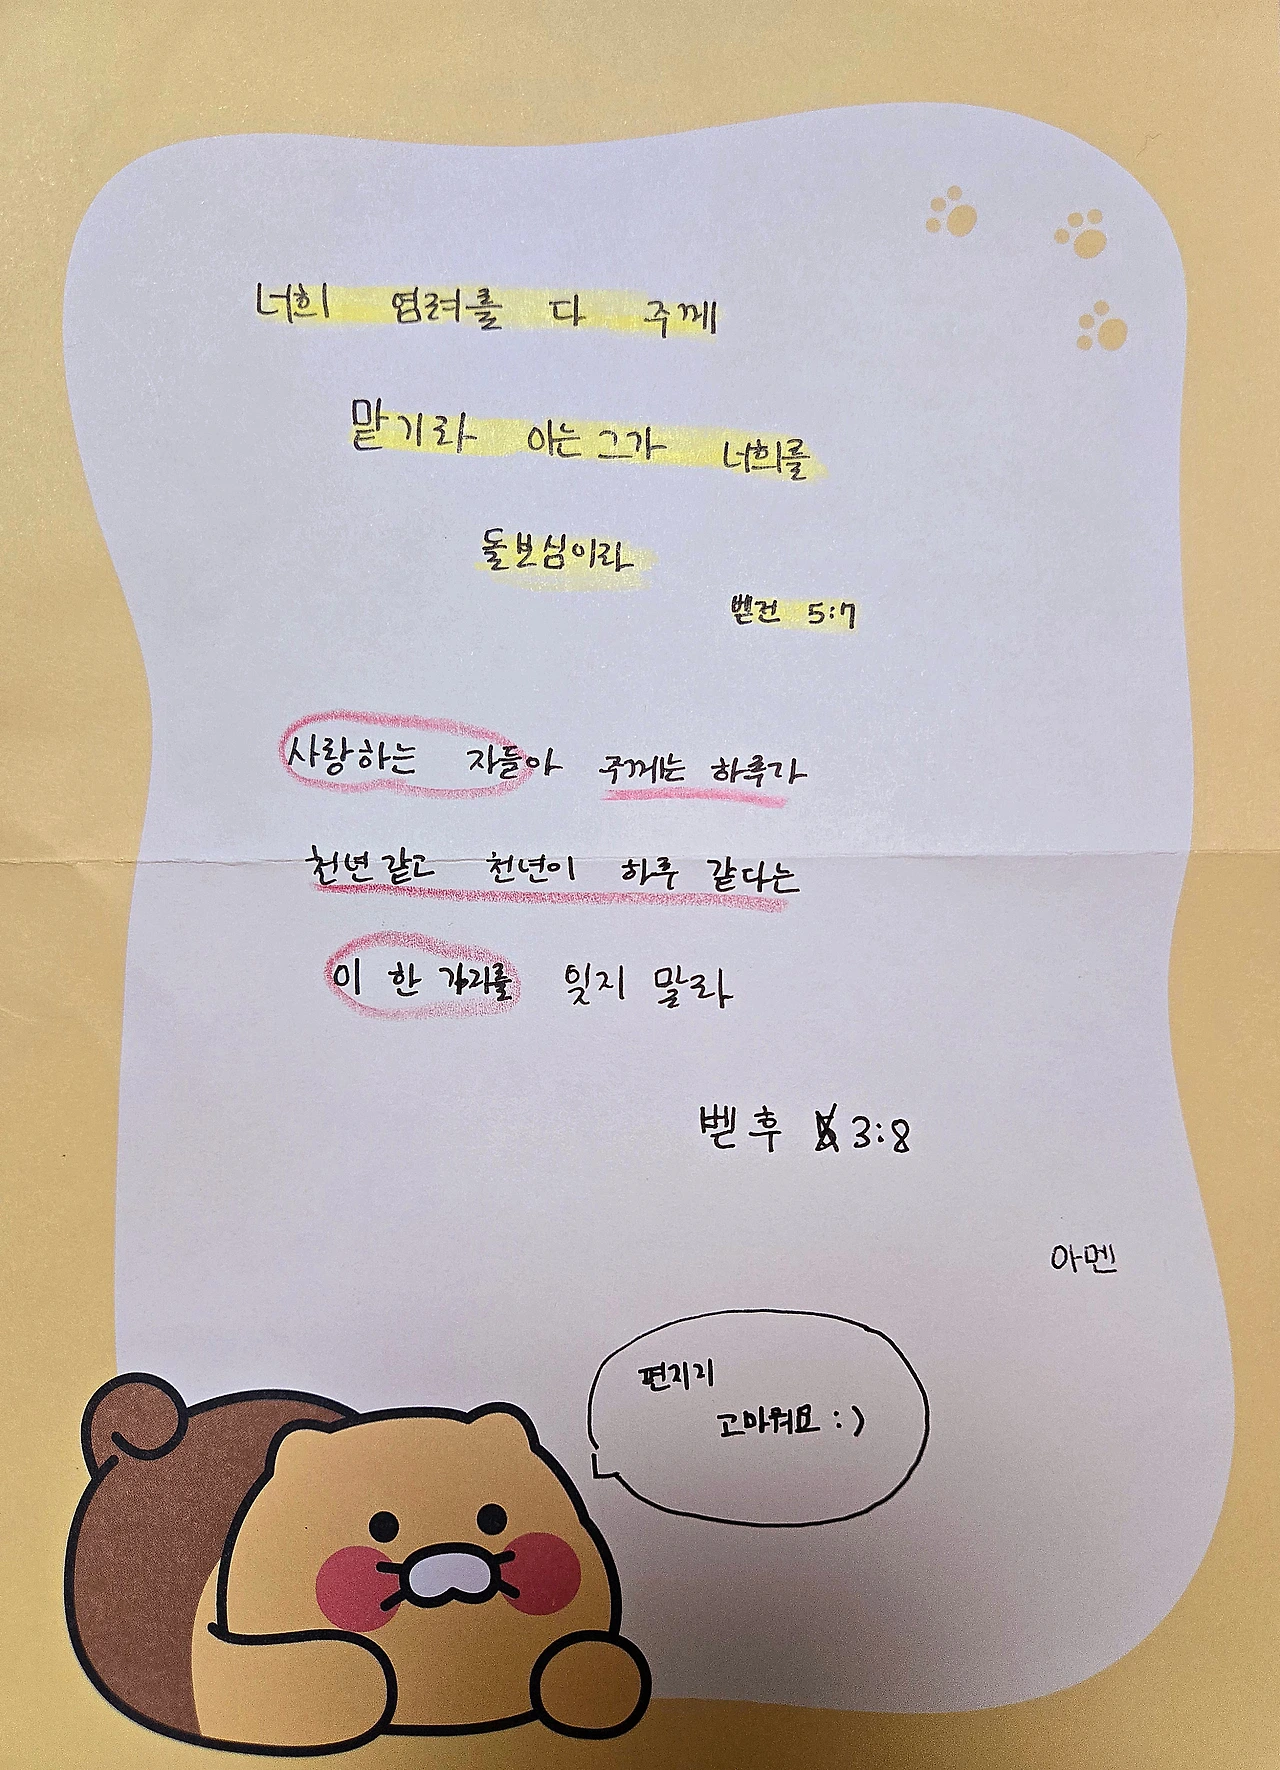 너희 염려를 다 주께
맡기라 이는 그가 너희를
돌보심이라
벧전 5:7
사랑하는 자들아 주께는 하루가
천년 같고 천년이 하루 같다는
이 한 가지를 잊지 말라
벧후 3:8
아멘
편지지
고마워요 :)